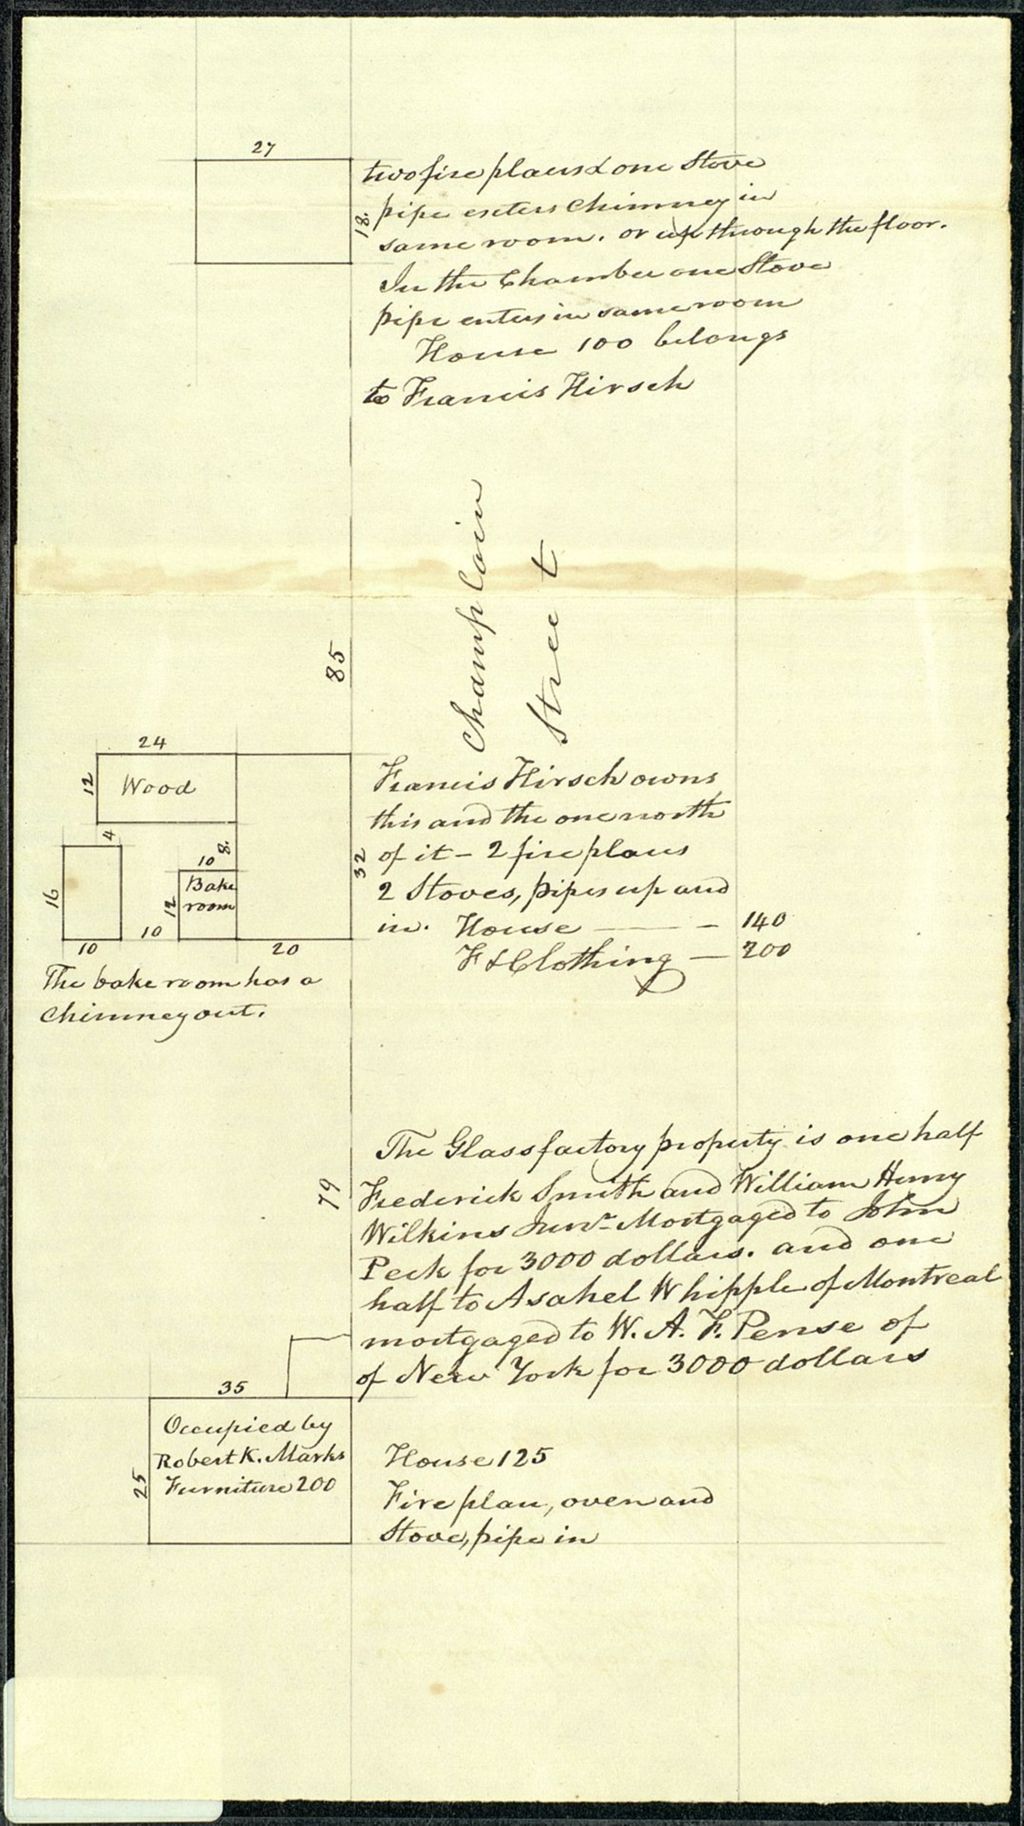 27
two fire places & one Stove
18. pipe enters Chimney in
same room. or up through the floor.
In the Chamber one Stove
pipe enters in same room
House 100 belongs
to Francis Hirsch
Champlain
Street
85
24
12
Wood
4
8.
10
Bake
room
12
16
10
10
20
32
The bake room has a
Chimney out.
Francis Hirsch owns
this and the one north
of it - 2 fire places
2 Stoves, pipes up and
in. House — - 140
F & Clothing — 200
79
The Glass factory property is one half
Frederick Smith and William Henry
Wilkins Junr. Mortgaged to John
Peck for 3000 dollars. and one
half to Asahel Whipple of Montreal
mortgaged to W. A. F. Pense of
of New York for 3000 dollars
35
25
Occupied by
Robert K. Marks
Furniture 200
House 125
Fire place, oven and
Stove, pipe in